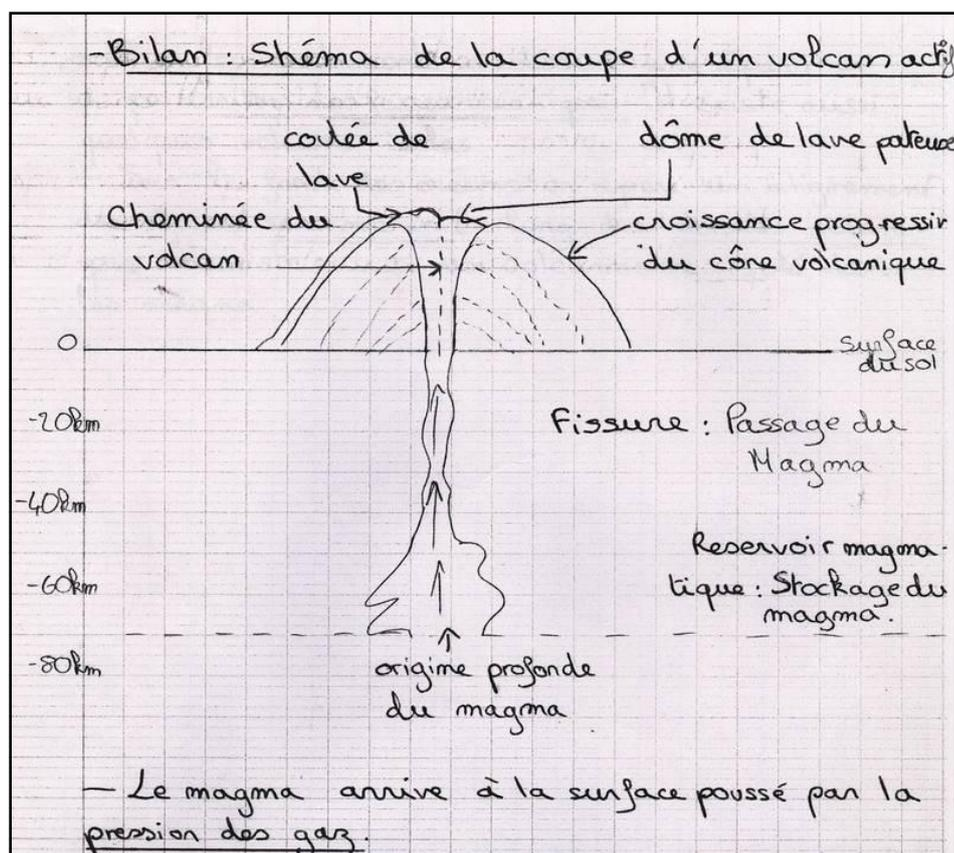 - Bilan : Shéma de la coupe d'un volcan actif
coulée de
lave
dôme de lave pateuse
Cheminée du
volcan
croissance progressiv
du cône volcanique
0
Surface
du sol
-20km
Fissure : Passage du
Magma
-40km
Reservoir magma-
tique : Stockage du
magma.
-60km
-80km
origine profonde
du magma
- Le magma arrive à la surface poussé par la
pression des gaz.